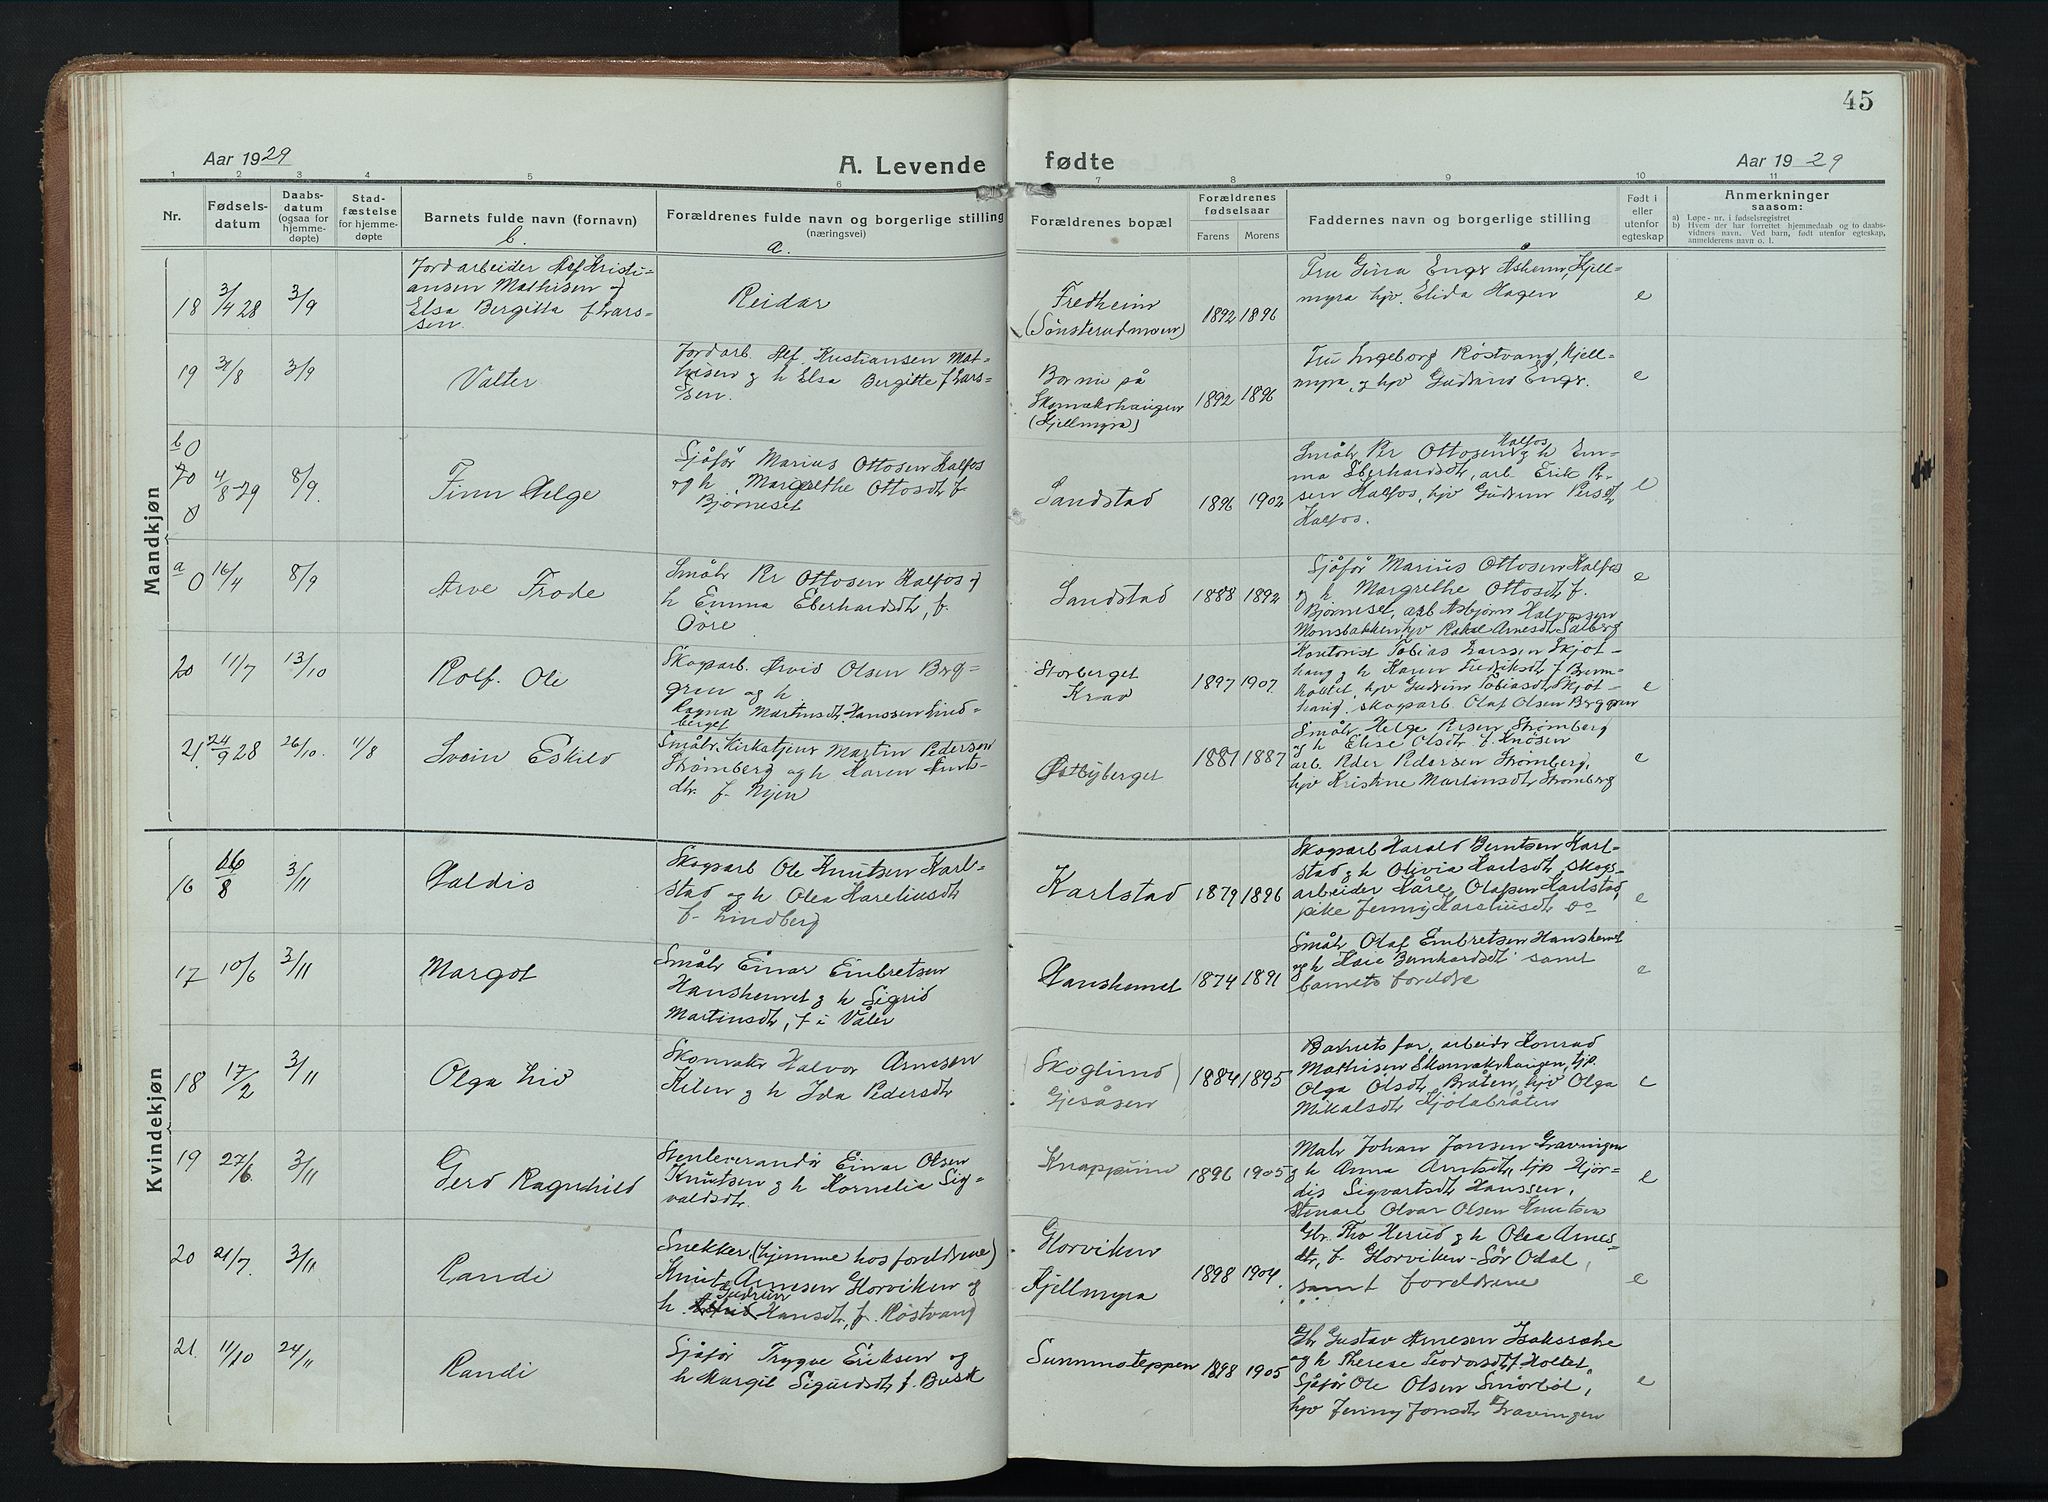 45
Aar 1929
A. Levende fødte
Aar 1929
1 2 3 4 5 6 7 8 9 10 11
Nr.
Fødsels-
datum
Daabs-
datum
(ogsaa for
hjemme-
døpte)
Stad-
fæstelse
for hjemme-
døpte
Barnets fulde navn (fornavn)
b.
Forældrenes fulde navn og borgerlige stilling
(næringsvei)
a.
Forældrenes bopæl
Forældrenes
fødselsaar
Farens Morens
Faddernes navn og borgerlige stilling
Født i
eller
utenfor
egteskap
Anmerkninger
saasom:
a) Løpe-nr. i fødselsregistret
b) Hvem der har forrettet hjemmedaab og to daabs-
vidners navn. Ved barn, født utenfor egteskap,
anmelderens navn o. l.
Mandkjøn
18 3/4 28 3/9
Jordarbeider Alf Kristi-
ansen Mathisen og
Elsa Bergitta f Lars-
sen.
Reidar
Fredheim
(Sønsterudmoen)
1892 1896
Fru Gina Enger Åsheim, Kjell-
myra hjv. Elida Hagen
e
19 31/8 3/9
Valter
Jordarb. Alf. Kristiansen Mat-
hisen og h Elsa Bergitte f Lars-
sen.
Bor nu på
Skomakerhaugen
(Kjellmyra)
1892 1896
Fru Ingeborg Røstvang, Kjell-
myra, og hjv Gudrun Enger.
e
b 0
20
0
4/8-29 8/9.
Finn Helge
Sjåfør Marius Ottosen Kalfos
og h Margrethe Ottosdt f.
Bjørneset
Sandstad
1896 1902
Småbr Pr Ottosen Kalfos og h Em-
ma Eberhardsdt, arb. Erik Pr-
sen Kalfos, hjv Gudrun Persdt
Kalfos.
e
a 0 16/4 8/9
Arve Frode
Småbr Pr Ottosen Kalfos og
h Emma Eberhardsdt, f.
Øvre
Sandstad
1888 1892
Sjåfør Marius Ottosen Kalfos
og h Margrethe Ottosdt f.
Bjørneset, arb Asbjørn Halvorsen
Monsbakken, hjv Rakel Arnesdt Sætberg
e
20 11/7 13/10
Rolf Ole
Skogarb. Arvid Olsen Berg-
gren og h
Ragna Martinsdt Hanssen Lind-
berget
Storberget
Krad
1897 1907
Kontorist Tobias Larssen Skjøt-
haug og h Karen Fredriksdt f. Brenn-
holtet, hjv Gudrun Tobiasdt Skjøt-
haug, skogarb Olaf Olsen Berggren
e
21. 24/9 28 26/10. 11/8
Svein Eskild
Småbr. Kirketjener Martin Pedersen
Strømberg og h Karen Knuts-
dtr. f. Nyen
Østbyberget
1881 1887
Småbr. Helge Persen Strømberg
og h Elise Olsdtr f. Knøsen
arb. Peder Pedersen Strømberg,
hjv Kristine Martinsdt Strømberg
e
Kvindekjøn
16 26/8 3/11
Valdis
Skogarb Ole Knutsen Karl-
stad og h Olea Kareliusdt
f. Lindberg
Karlstad
1879 1896
Skogarb Harald Berntsen Karl-
stad og h Olivia Karlsdt, skogs-
arbeider Kåre Olafsen Karlstad,
pike Jenny Kareliusdt do
e
17 10/6 3/11
Margot
Småbr Einar Embretsen
Hanshemet og h Sigrid
Martinsdt, f. i Våler
Hanshemet
1874 1891
Småbr Olaf Embretsen Hanshemet
og h Kaia Bernhardsdt samt
barnets foreldre
e
18 17/2 3/11
Olga Liv
Skomaker Halvor Arnesen
Kelen og h Ida Pedersdt
Skoglund
Gjesåsen
1884 1895
Barnets far, arbeider Konrad
Mathisen Skomakerhaugen, tjp.
Olga Olsdt Bråten, hjv Olga
Mikalsdt Kjølabråten
e
19 27/6. 3/11
Gerd Ragnhild
Stenleverandør Einar Olsen
Knutsen og h Kornelia Sig-
valdsdt.
Knappum
1896 1905
Maler Johan Jansen Gravingen
og h Anna Arntsdt, tjp Hjør-
dis Sigvartsdt Hanssen,
Stenarb Olvar Olsen Knutsen
e
20 21/7. 3/11
Randi
Snekker (hjemme hos foreldrene)
Knut Arnesen Horviken og
h. Gudrun Hansdt, f. Røstvang
Horviken
Kjellmyra
1898 1904
Gbr. Tho Herud og h Olea Arnes-
dtr, f. Horviken - Sør Odal,
samt foreldrene
e
21. 11/10 24/11
Randi
Sjåfør Trygve Eriksen og
h Margit Sigurdsdt f. Busk
Summoteppen
1898 1905
Gbr Gustav Arnesen Isakssætre
og h Therese Teodorsdt f Holtet,
Sjåfør Ole Olsen Smørbøl,
hjv Jenny Jonsdt Gravingen
e